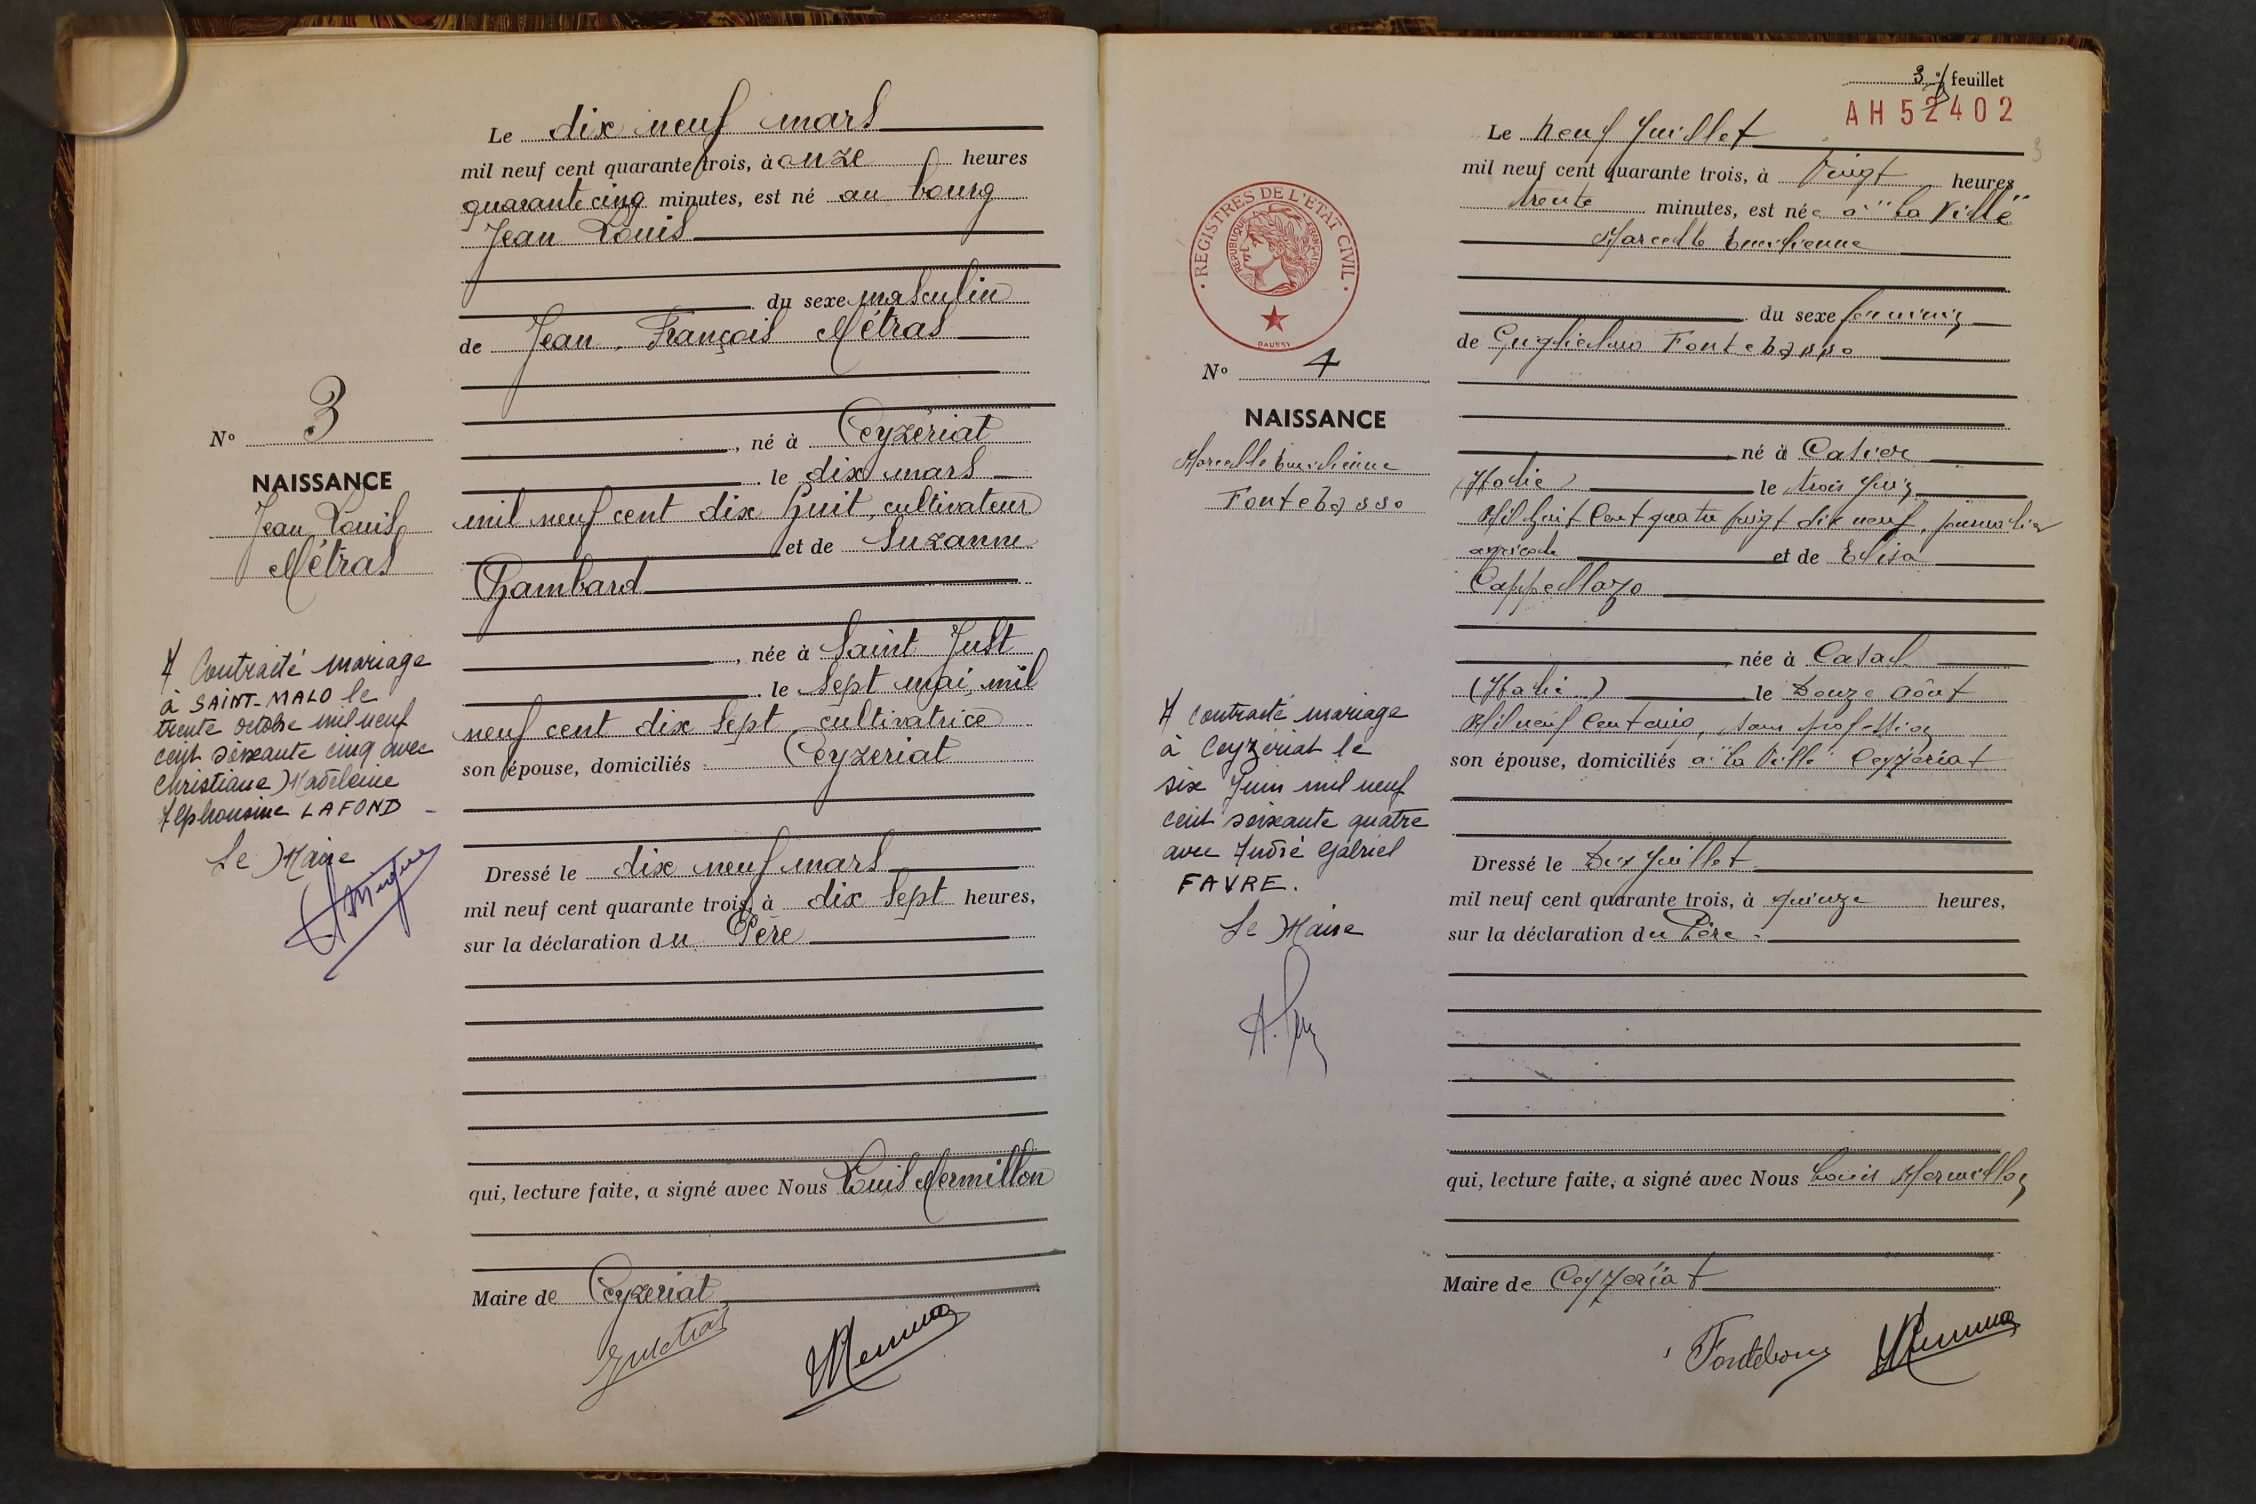 Le dix neuf mars
mil neuf cent quarante trois, à onze heures
quarante cinq minutes, est né au bourg
Jean Louis
du sexe masculin
de Jean François Métras
N° 3
NAISSANCE
Jean Louis
Métras
, né à Ceyzériat
le dix mars
mil neuf cent dix huit, cultivateur
et de Suzanne
Chambard
, née à Saint Just
le sept mai mil
neuf cent dix sept cultivatrice
son épouse, domiciliés Ceyzeriat
A Contracté mariage
à SAINT-MALO le
trente octobre mil neuf
cent soixante cinq avec
Christiane Madeleine
Alphonsine LAFOND
Le Maire
Dressé le dix neuf mars
mil neuf cent quarante trois, à dix sept heures,
sur la déclaration du Père
qui, lecture faite, a signé avec Nous Louis Mermillon
Maire de Ceyzeriat
3 feuillet
AH 52402
3
Le neuf Juillet
mil neuf cent quarante trois, à Vingt heures
trente minutes, est née à "La Ville"
Marcelle Emilienne
du sexe feminin
de Guglielmo Fontebasso
REGISTRES DE L'ÉTAT CIVIL
RÉPUBLIQUE FRANÇAISE
DAUSSY
N° 4
NAISSANCE
Marcelle Emilienne
Fontebasso
né à Casier
(Italie) le trois Juin
Mil huit Cent quatre vingt dix neuf, journalier
agricole et de Elisa
Cappellazo
née à Casal
(Italie) le Douze Août
Mil neuf Cent cinq, sans profession
son épouse, domiciliés à "la Ville" Ceyzériat
A contracté mariage
à Ceyzériat le
six Juin mil neuf
cent soixante quatre
avec André Gabriel
FAVRE.
Le Maire
Dressé le Dix Juillet
mil neuf cent quarante trois, à quinze heures,
sur la déclaration du Père
qui, lecture faite, a signé avec Nous Louis Mermillon
Maire de Ceyzeriat